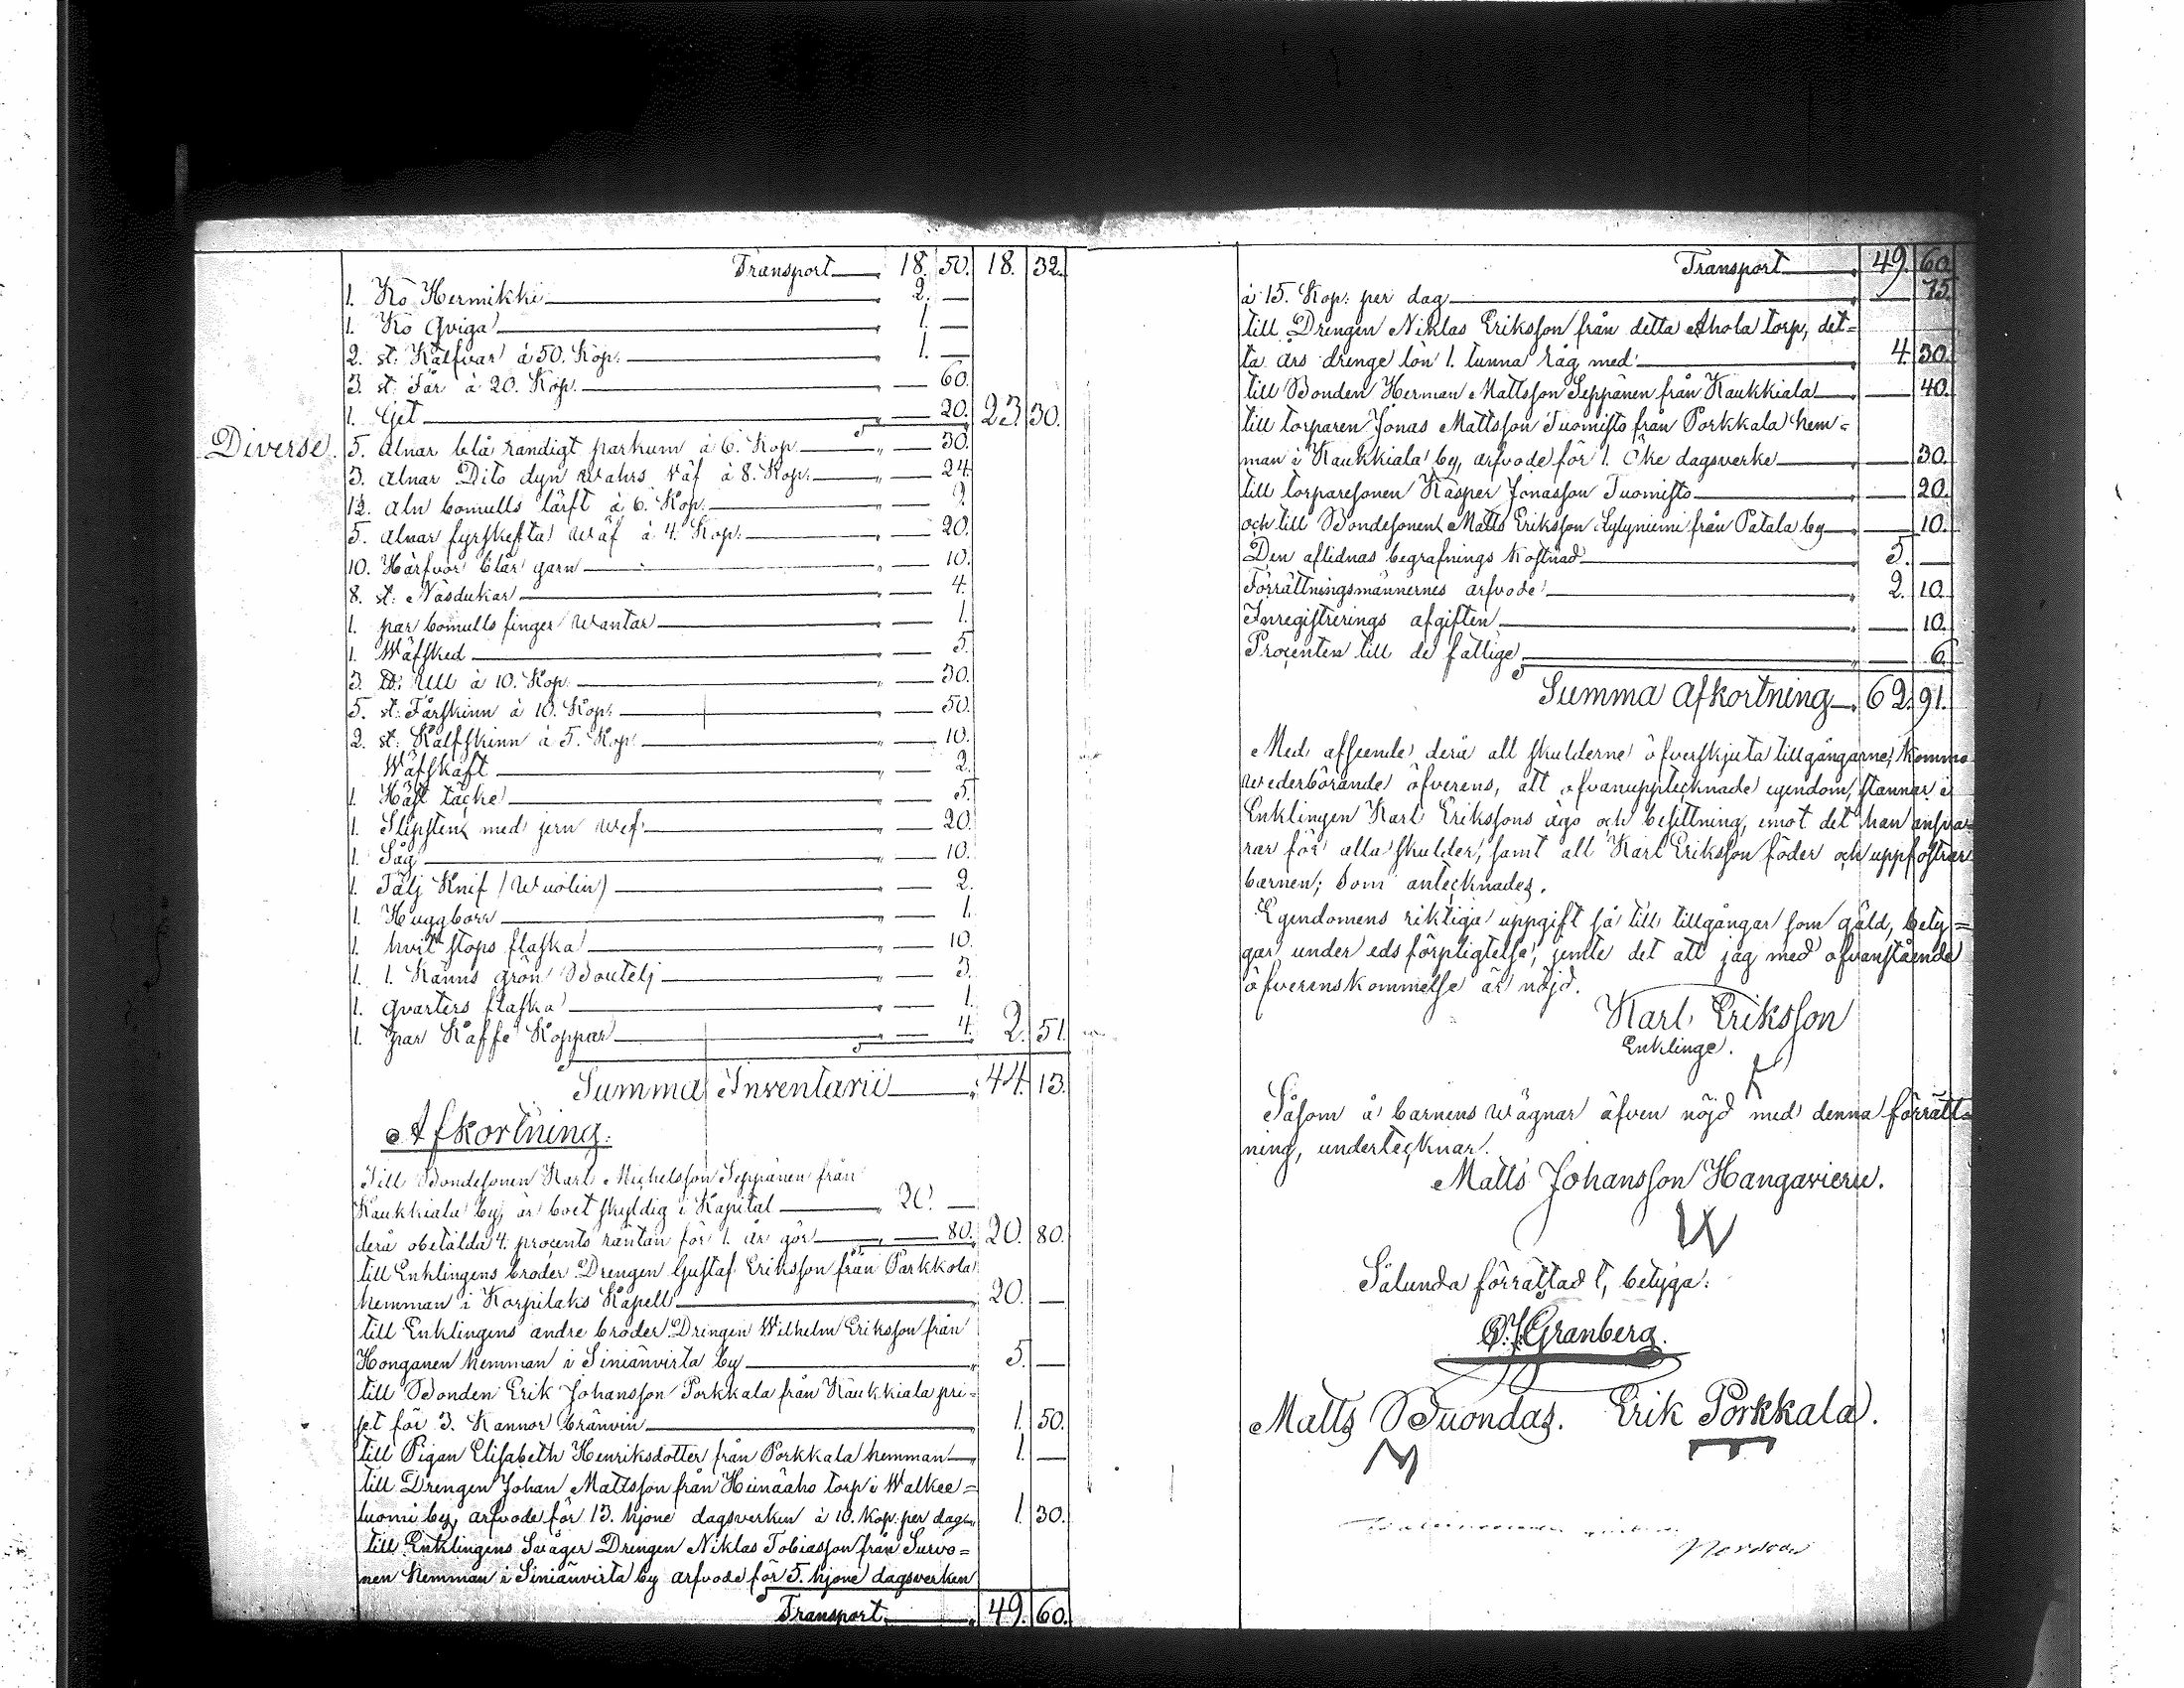 Transport 18. 50. 18. 32.
1. Ko Hermikki 2. —
1. Ko Qviga 1. —
2. st: Kalfvar à 50. Kop. 1. —
3. st: Får à 20. Kop. — 60.
1. Get — 20. 23. 30.
Diverse. 5. alnar blå randigt parkum à 6. Kop. — 30.
3. alnar Dito dyn wahrs väf à 8. Kop. — 24.
1½. aln bomulls lärft à 6. Kop. — 9.
5. alnar fyrskefta wäf à 4. Kop: — 20.
10. Härfvor blår garn — 10.
8. st: Näsdukar — 4.
1. par bomulls finger wantar — 1.
1. Wäfsked — 5.
3. ℔: Ull à 10. Kop. — 30.
5. st: Fårskinn à 10. Kop: — 50.
2. st: Kalfskinn à 5. Kop. — 10.
Wäfskaft — 2.
1. Häst täcke — 5.
1. Slipsten med jern wef — 20.
1. Såg — 10.
1. Tälj Knif (Wuolin) — 2.
1. Huggborr — 1.
1. hvit stops flaska — 10.
1. 1. Kanns grön Boutelj — 3.
1. qvarters flaska — 1.
1. par Kaffe Koppar — 4. 2. 51.
Summa Inventarii 44. 13.
Afkortning.
Till Bondesonen Karl Michelsson Seppänen från
Kaukkiala by, är boet skyldig i Kapital 20. —
derå obetalda 4. procents räntan för 1. år gör — 80. 20. 80.
till Enklingens broder Drengen Gustaf Eriksson från Parkkola
hemman i Korpilaks Kapell 20. —
till Enklingens andre broder Drengen Wilhelm Eriksson från
Honganen hemman i Siniänvirta by 5. —
till Bonden Erik Johansson Porkkala från Kaukkiala pri=
set för 3. Kannor bränvin 1. 50.
till Pigan Elisabeth Henriksdotter från Porkkala hemman 1. —
till Drengen Johan Mattsson från Heinäaho torp i Walkee=
luomi by, arfvode för 13. hjone dagsverken à 10. Kop. per dag 1. 30.
till Enklingens Swåger Drengen Niklas Tobiasson från Survo=
nen hemman i Siniänvirta by arfvode för 5. hjone dagsverken
Transport 49. 60.
Transport 49. 60.
à 15. Kop: per dag — 75.
till Drengen Niklas Eriksson från detta Ahola torp, det=
ta års drenge lön 1. tunna råg med 4. 30.
till Bonden Herman Mattsson Seppänen från Kaukkiala — 40.
till torparen Jonas Mattsson Tuomisto från Porkkala hem=
man i Kaukkiala by, arfvode för 1. Öke dagsverke — 30.
till torparesonen Kasper Jonasson Tuomisto — 20.
och till Bondesonen Matts Eriksson Lylyniemi från Patala by — 10.
Den aflidnas begrafnings Kostnad 5. —
Förrättningsmännernes arfvode 2. 10.
Inregistrerings afgiften — 10.
Procenten till de fattige — 6.
Summa Afkortning 62. 91.
Med afseende derå att skulderne öfverskjuta tillgångarne, Kommo
wederbörande öfverens, att ofvanupptecknade egendom, stannar i
Enklingen Karl Erikssons ägo och besittning, emot det han ansva=
rar för alla skulder, samt att Karl Eriksson föder och uppfostrar
barnen; Som antecknades.
Egendomens riktiga uppgift så till tillgångar som gäld, bety=
gar under eds förpligtelse, jemte det att jag med ofvanstående
öfverenskommelse är nöjd.
Karl Eriksson
Enklinge.
Såsom å barnens wägnar äfven nöjd med denna förrätt=
ning, undertecknar.
Matts Johansson Hangavieru.
Sålunda förrättadt, betyga:
Granberg.
Matts Tuondas. Erik Porkkala.